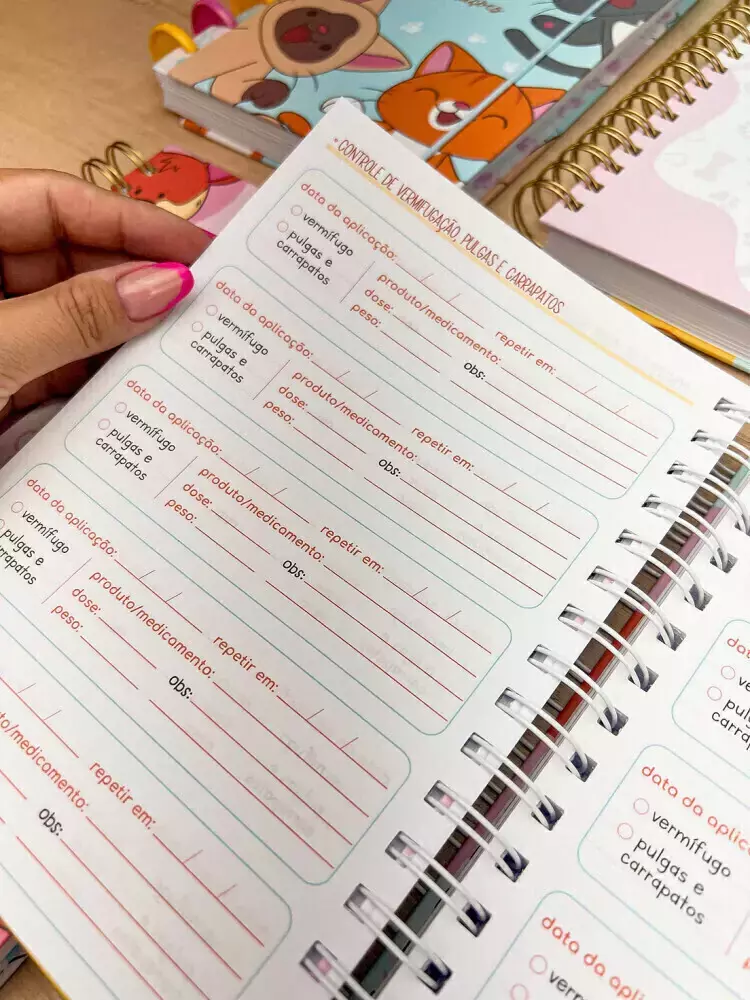 CONTROLE DE VERMIFUGAÇÃO, PULGAS E CARRAPATOS
data da aplicação: / /
vermífugo
pulgas e
carrapatos
produto/medicamento:
dose:
peso:
repetir em: / /
obs:
data da aplicação: / /
vermífugo
pulgas e
carrapatos
produto/medicamento:
dose:
peso:
repetir em: / /
obs:
data da aplicação: / /
vermífugo
pulgas e
carrapatos
produto/medicamento:
dose:
peso:
repetir em: / /
obs:
data da aplicação: / /
vermífugo
pulgas e
rrapatos
produto/medicamento:
dose:
peso:
repetir em: / /
obs:
/ /
to/medicamento:
repetir em: / /
obs:
dat
ve
pul
carr
data da aplic
vermífugo
pulgas e
carrapatos
data da apli
verm